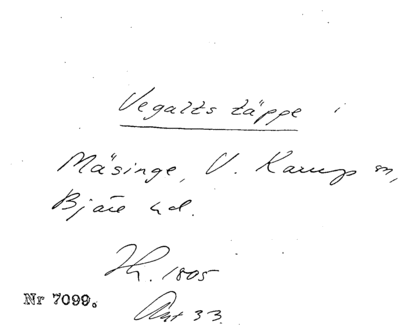 Vegalts täppe i
Mäsinge, V. Karup sn,
Bjäre hd.
Lh. 1805
Nr 7099.
Akt 33.